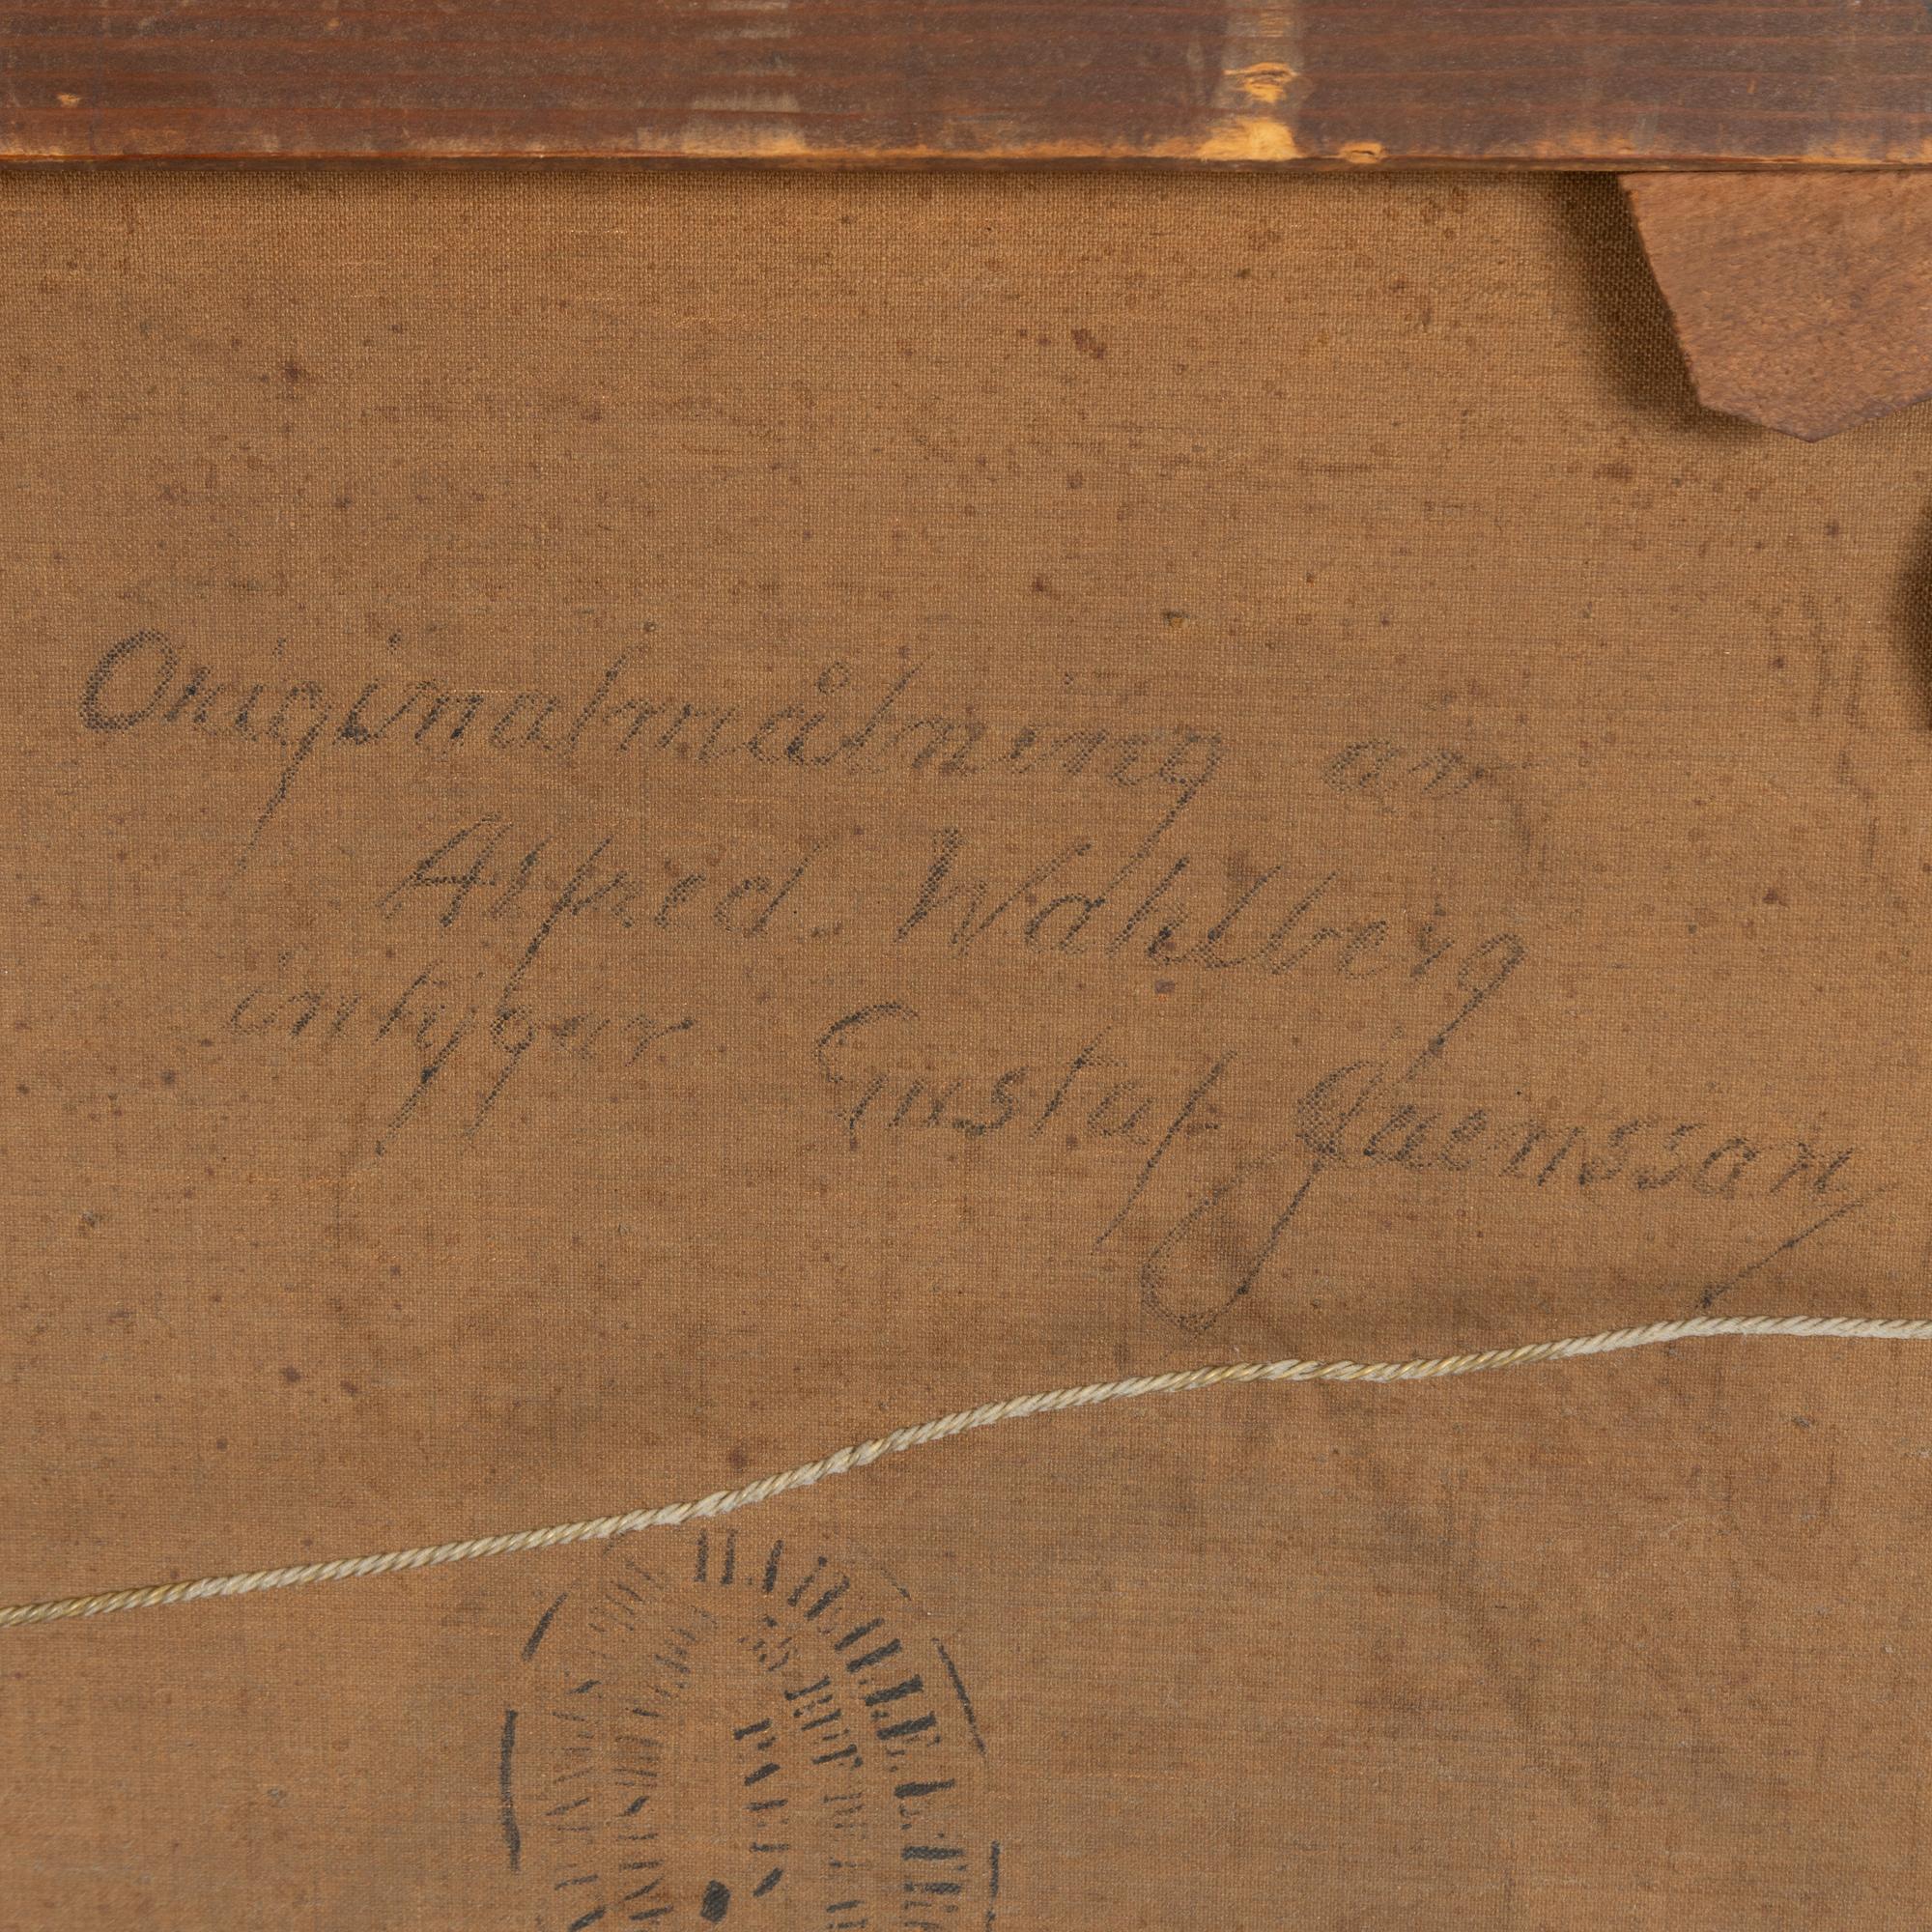 Originalmålning av
Alfred. Wahlberg
intygar Gustaf Jaensson
PARIS